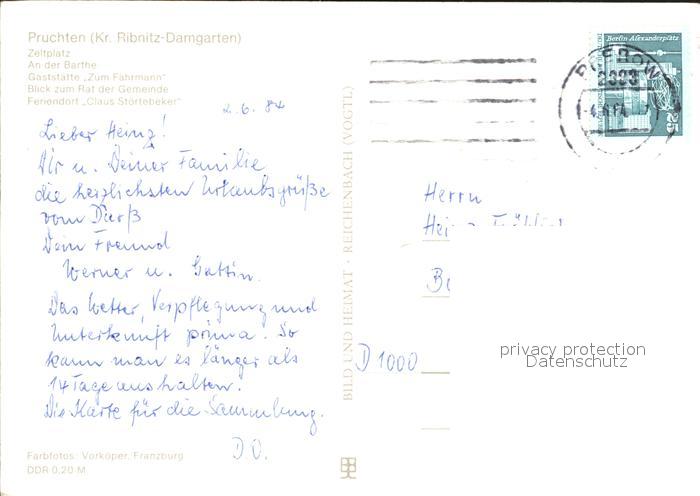 Pruchten (Kr. Ribnitz-Damgarten)
Zeltplatz
An der Barthe
Gaststätte „Zum Fährmann“
Blick zum Rat der Gemeinde
Feriendorf „Claus Störtebeker“
2.6.84
Lieber Heinz!
Dir u. Deiner Familie
die herzlichsten Urlaubsgrüße
vom Darß
Dein Freund
Werner u. Gattin.
Das Wetter, Verpflegung und
Unterkunft prima. So
kann man es länger als
14 Tage aushalten.
Die Karte für die Sammlung.
D O.
Farbfotos: Vorköper, Franzburg
DDR 0,20 M
BILD UND HEIMAT · REICHENBACH (VOGTL)
Berlin-Alexanderplatz
25
PREROW
2383
Herrn
Hei
D 1000
privacy protection
Datenschutz